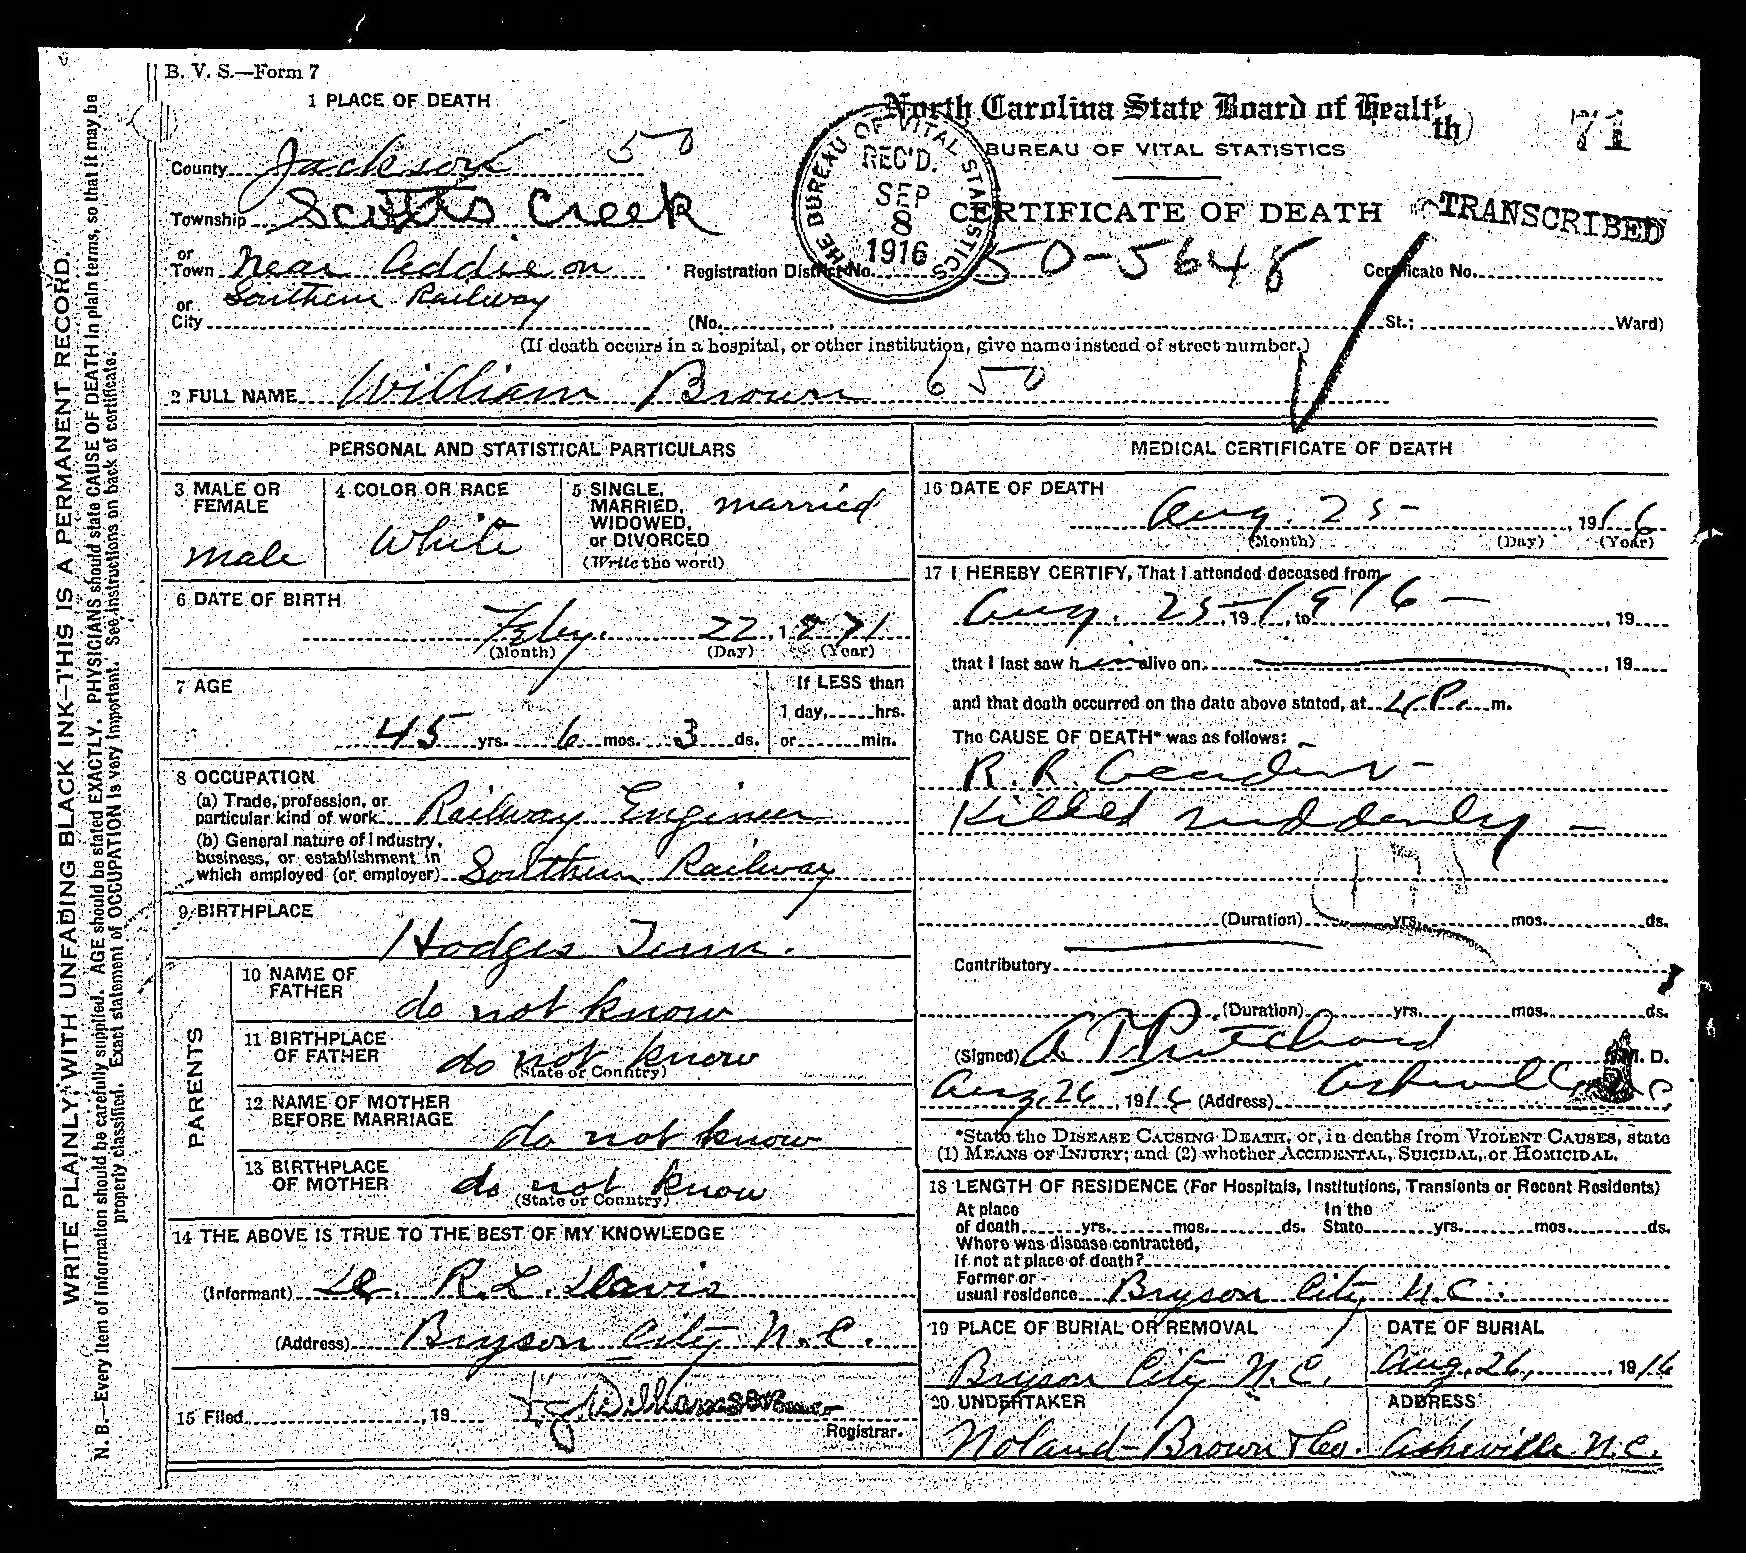 B. V. S.—Form 7
1 PLACE OF DEATH
North Carolina State Board of Health
71
BUREAU OF VITAL STATISTICS
CERTIFICATE OF DEATH
TRANSCRIBED
THE BUREAU OF VITAL STATISTICS
REC'D.
SEP
8
1916
County Jackson 50
Township Scotts Creek
or Town near Addie on
Registration District No. 50-5648 Certificate No.
or City Southern Railway
(No. , St.; Ward)
(If death occurs in a hospital, or other institution, give name instead of street number.)
2 FULL NAME William Brown 650
PERSONAL AND STATISTICAL PARTICULARS
3 MALE OR FEMALE
male
4 COLOR OR RACE
White
5 SINGLE, MARRIED, WIDOWED, or DIVORCED
(Write the word)
married
6 DATE OF BIRTH
Feby. 22, 1871
(Month) (Day) (Year)
7 AGE
45 yrs. 6 mos. 3 ds.
If LESS than
1 day, hrs.
or min.
8 OCCUPATION
(a) Trade, profession, or
particular kind of work Railway Engineer
(b) General nature of Industry,
business, or establishment in
which employed (or employer) Southern Railway
9 BIRTHPLACE
Hodges Tenn.
PARENTS
10 NAME OF FATHER
do not know
11 BIRTHPLACE OF FATHER
do not know
(State or Country)
12 NAME OF MOTHER BEFORE MARRIAGE
do not know
13 BIRTHPLACE OF MOTHER
do not know
(State or Country)
14 THE ABOVE IS TRUE TO THE BEST OF MY KNOWLEDGE
(Informant) R. L. Davis
(Address) Bryson City N.C.
15 Filed , 19
Registrar.
MEDICAL CERTIFICATE OF DEATH
16 DATE OF DEATH
Aug. 25- , 1916
(Month) (Day) (Year)
17 I HEREBY CERTIFY, That I attended deceased from
Aug. 25-1916- , 19 , to , 19
that I last saw h alive on , 19
and that death occurred on the date above stated, at 4 P. m.
The CAUSE OF DEATH* was as follows:
R.R. Accident-
Killed suddenly-
(Duration) yrs. mos. ds.
Contributory
(Duration) yrs. mos. ds.
(Signed) Pritchard M. D.
Aug. 26, 1916 (Address) Asheville
*State the DISEASE CAUSING DEATH, or, in deaths from VIOLENT CAUSES, state
(1) MEANS OF INJURY; and (2) whether ACCIDENTAL, SUICIDAL, or HOMICIDAL.
18 LENGTH OF RESIDENCE (For Hospitals, Institutions, Transients or Recent Residents)
At place of death yrs. mos. ds. In the State yrs. mos. ds.
Where was disease contracted,
If not at place of death?
Former or
usual residence Bryson City N.C.
19 PLACE OF BURIAL OR REMOVAL
Bryson City N.C.
DATE OF BURIAL
Aug. 26, 1916
20 UNDERTAKER
Noland-Brown & Co.
ADDRESS
Asheville N.C.
WRITE PLAINLY, WITH UNFADING BLACK INK—THIS IS A PERMANENT RECORD.
N. B.—Every item of information should be carefully supplied. AGE should be stated EXACTLY. PHYSICIANS should state CAUSE OF DEATH in plain terms, so that it may be
properly classified. Exact statement of OCCUPATION is very important. See instructions on back of certificate.